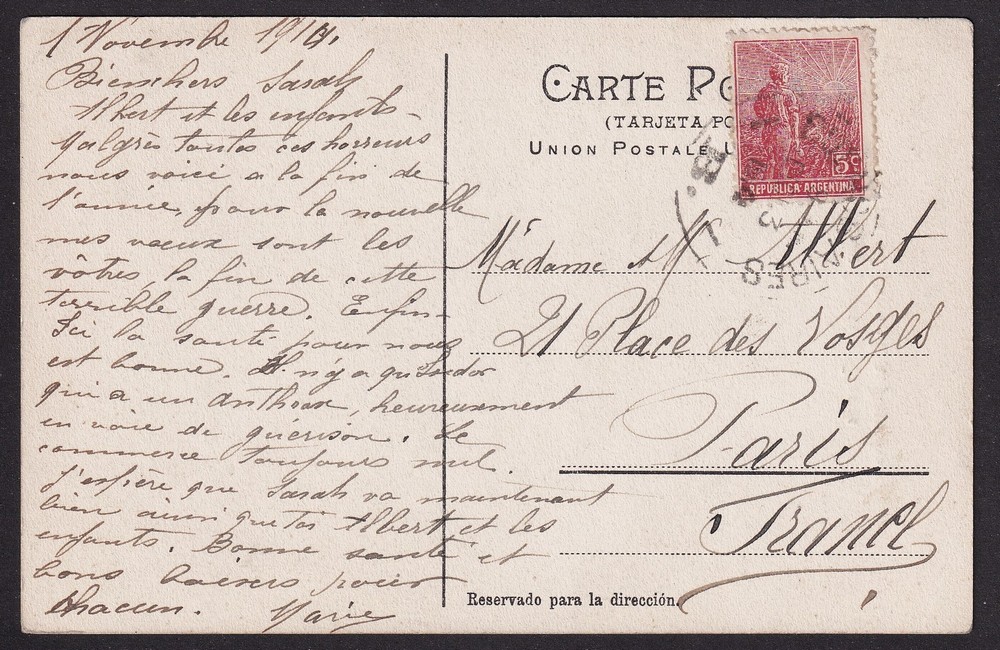 1 Novembre 1914
Bien chers Sarah
Albert et les enfants -
Malgrès toutes ces horreurs
nous voici a la fin de
l'année, pour la nouvelle
mes vœux sont les
vôtres, la fin de cette
terrible guerre. Enfin
Ici la santé pour nous
est bonne. Il n'y a qu'Isidor
qui a un anthrax, heureusement
en voie de guérison. Le
commerce toujours nul.
J'espère que Sarah va maintenant
bien ainsi que toi Albert et les
enfants. Bonne santé et
bons baisers pour
chacun. Marie
CARTE PO
(TARJETA PO
UNION POSTALE U
5c
REPUBLICA ARGENTINA
AIRES
Madame M Albert
21 Place des Vosges
Paris
France
Reservado para la dirección.